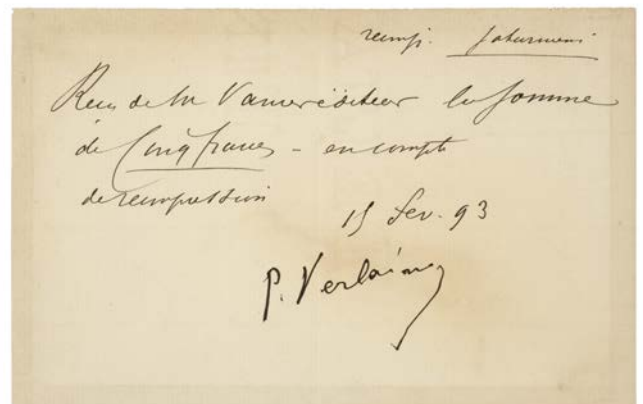 reimp. Saturniens
Reçu de Mr Vanier éditeur la somme
de Cinq francs - en compte
de reimpression
15 fev. 93
P. Verlaine